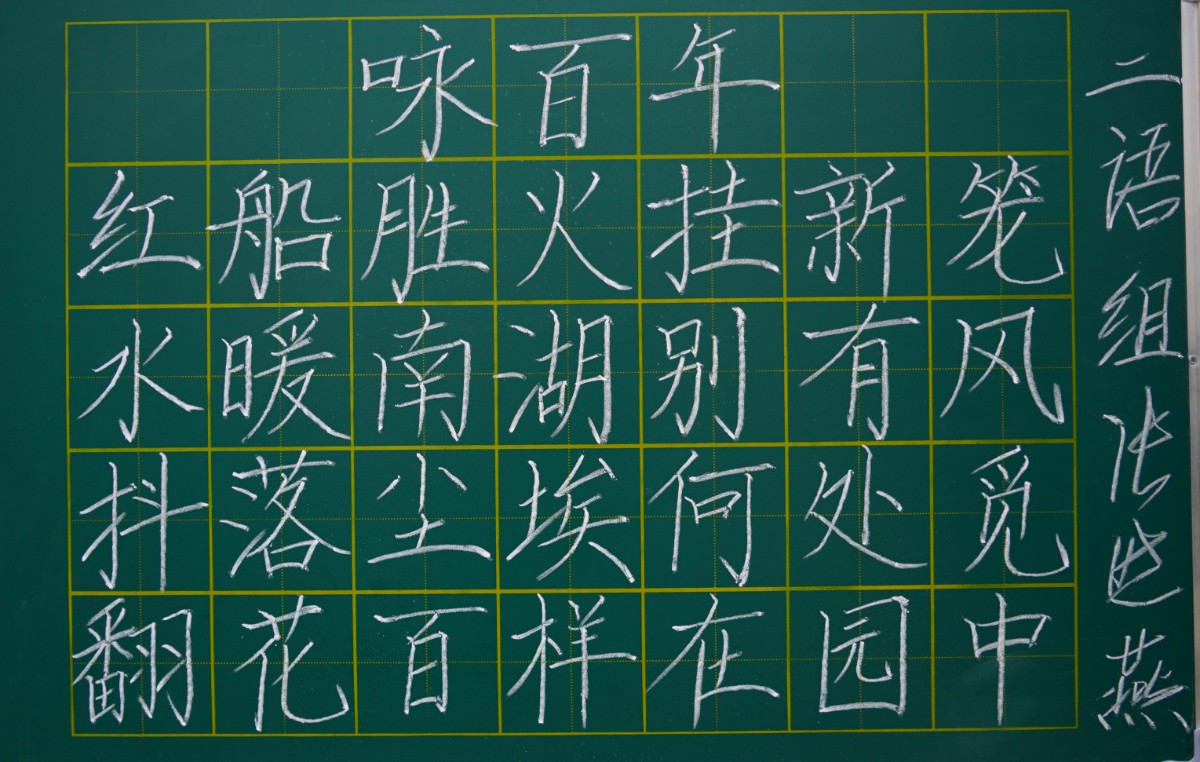 咏百年
红船胜火挂新笼
水暖南湖别有风
抖落尘埃何处觅
翻花百样在园中
二语组张世燕